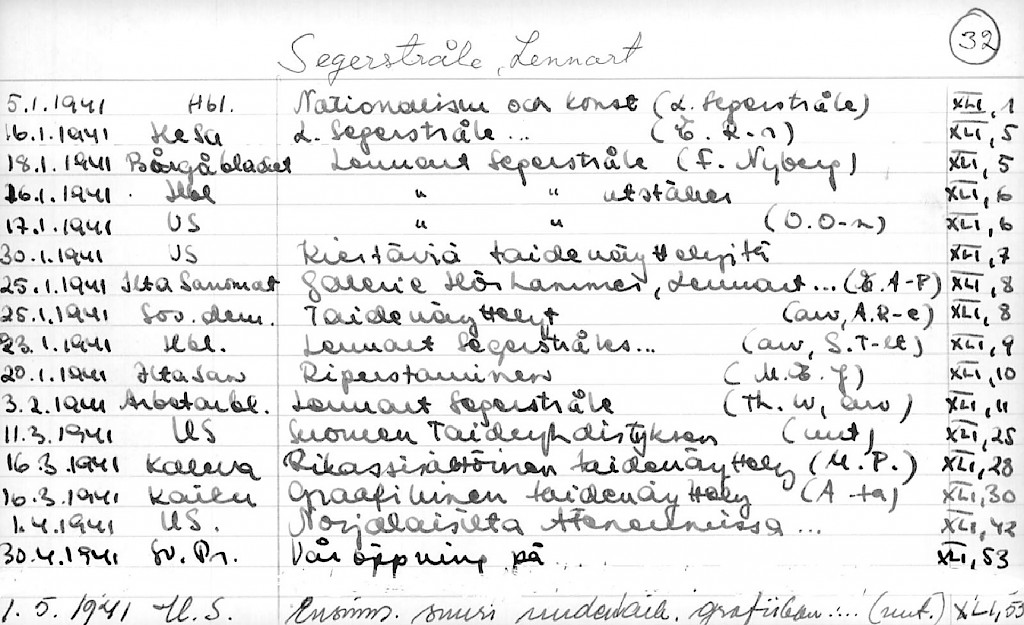 32
Segerstråle, Lennart
5.1.1941 Hbl. Nationalism och konst (L. Segerstråle) XLI, 1
16.1.1941 HeSa L. Segerstråle ... (E. R-r) XLI, 5
18.1.1941 Borgåbladet Lennart Segerstråle (F. Nyberg) XLI, 5
16.1.1941 Hbl " " utställer XLI, 6
17.1.1941 US " " (O.O-n) XLI, 6
30.1.1941 US Kiertäviä taidenäyttelyitä XLI, 7
25.1.1941 Ilta Sanomat Galerie Hörhammer, Lennart ... (E. A-P) XLI, 8
25.1.1941 Sos.dem. Taidenäyttelyt (arv, A.R-e) XLI, 8
23.1.1941 Hbl. Lennart Segerstråles... (arv, S.T-lt) XLI, 9
20.1.1941 IltaSan Ripustaminen (M.E.J) XLI, 10
3.2.1941 Arbetarbl. Lennart Segerstråle (Th. W, arv) XLI, 11
11.3.1941 US Suomen Taideyhdistyksen (uut) XLI, 25
16.3.1941 Kaleva Rikassisältöinen taidenäyttely (M.P.) XLI, 28
16.3.1941 Kaiku Graafillinen taidenäyttely (A-ta) XLI, 30
1.4.1941 US. Norjalaisilta Ateneumissa ... XLI, 42
30.4.1941 Sv.Pr. Vår öppning på ... XLI, 53
1.5.1941 H.S. Ensimm. suuri grafiikan .... (uut.) XLI, 53